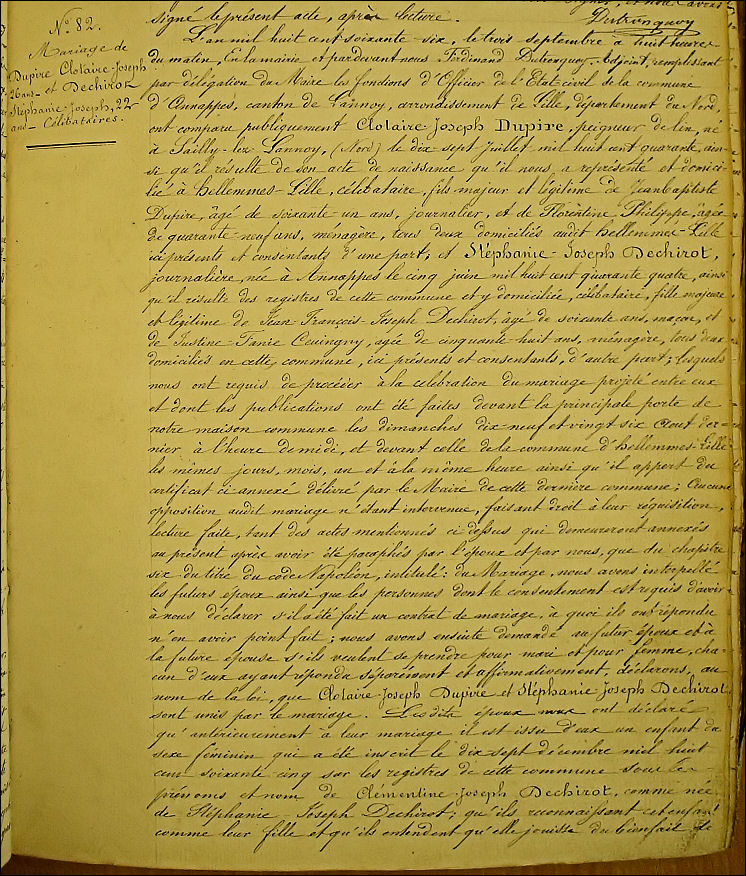 signé le présent acte, après lecture.
Dutronquoy
N.º 82.
Mariage de
Dupire Clotaire-Joseph
26 ans et Dechirot
Stéphanie-Joseph, 22
ans Célibataires.
L'an mil huit cent soixante-six, le trois septembre à huit heures
du matin, En la mairie et pardevant nous Ferdinand Dutronquoy, adjoint, remplissant
par délégation du Maire les fonctions d'Officier de l'Etat civil de la commune
d'Annappes, canton de Lannoy, arrondissement de Lille, département du Nord,
ont comparu publiquement Clotaire-Joseph Dupire, peigneur de lin, né
à Sailly-lez-Lannoy, (Nord) le dix-sept Juillet mil huit cent quarante, ain-
si qu'il résulte de son acte de naissance qu'il nous a représenté et domici-
lié à Hellemmes-Lille, célibataire, fils majeur et légitime de Jean Baptiste
Dupire, âgé de soixante-un ans, journalier, et de Florentine Philippe, âgée
de quarante-neuf ans, ménagère, tous deux domiciliés audit Hellemmes-Lille
ici présents et consentants d'une part; et Stéphanie-Joseph Dechirot,
journalière, née à Annappes le cinq juin mil huit cent quarante quatre, ainsi
qu'il résulte des registres de cette commune et y domiciliée, célibataire, fille majeure
et légitime de Jean François-Joseph Dechirot, âgé de soixante ans, maçon, et
de Justine-Fanie agée de cinquante-huit ans, ménagère, tous deux
domiciliés en cette commune, ici présents et consentants, d'autre part; lesquels
nous ont requis de procéder à la célébration du mariage projeté entre eux
et dont les publications ont été faites devant la principale porte de
notre maison commune les dimanches dix neuf et vingt six Aout der-
nier à l'heure de midi, et devant celle de la commune d'Hellemmes-Lille
les mêmes jours, mois, an et à la même heure ainsi qu'il appert du
certificat ci-annexé délivré par le Maire de cette dernière commune; Aucune
opposition audit mariage n'étant intervenue, faisant droit à leur réquisition,
lecture faite, tant des actes mentionnés ci-dessus qui demeureront annexés
au présent après avoir été paraphés par l'époux et par nous, que du chapitre
six du titre du code Napoléon, intitulé: du Mariage, nous avons interpellé
les futurs époux ainsi que les personnes dont le consentement est requis d'avoir
à nous déclarer s'il a été fait un contrat de mariage, à quoi ils ont répondu
n'en avoir point fait; nous avons ensuite demandé au futur époux et à
la future épouse s'ils veulent se prendre pour mari et pour femme, cha-
cun d'eux ayant répondu séparément et affirmativement, déclarons, au
nom de la loi, que Clotaire-Joseph Dupire et Stéphanie-Joseph Dechirot
sont unis par le mariage. Lesdits époux ont déclaré
qu'antérieurement à leur mariage il est issu d'eux un enfant du
sexe féminin qui a été inscrit le dix sept décembre mil huit
cent soixante cinq sur les registres de cette commune sous les
prénoms et nom de Clémentine-Joseph Dechirot, comme née
de Stéphanie-Joseph Dechirot; qu'ils reconnaissent cet enfant
comme leur fille et qu'ils entendent qu'elle jouisse du bienfait de